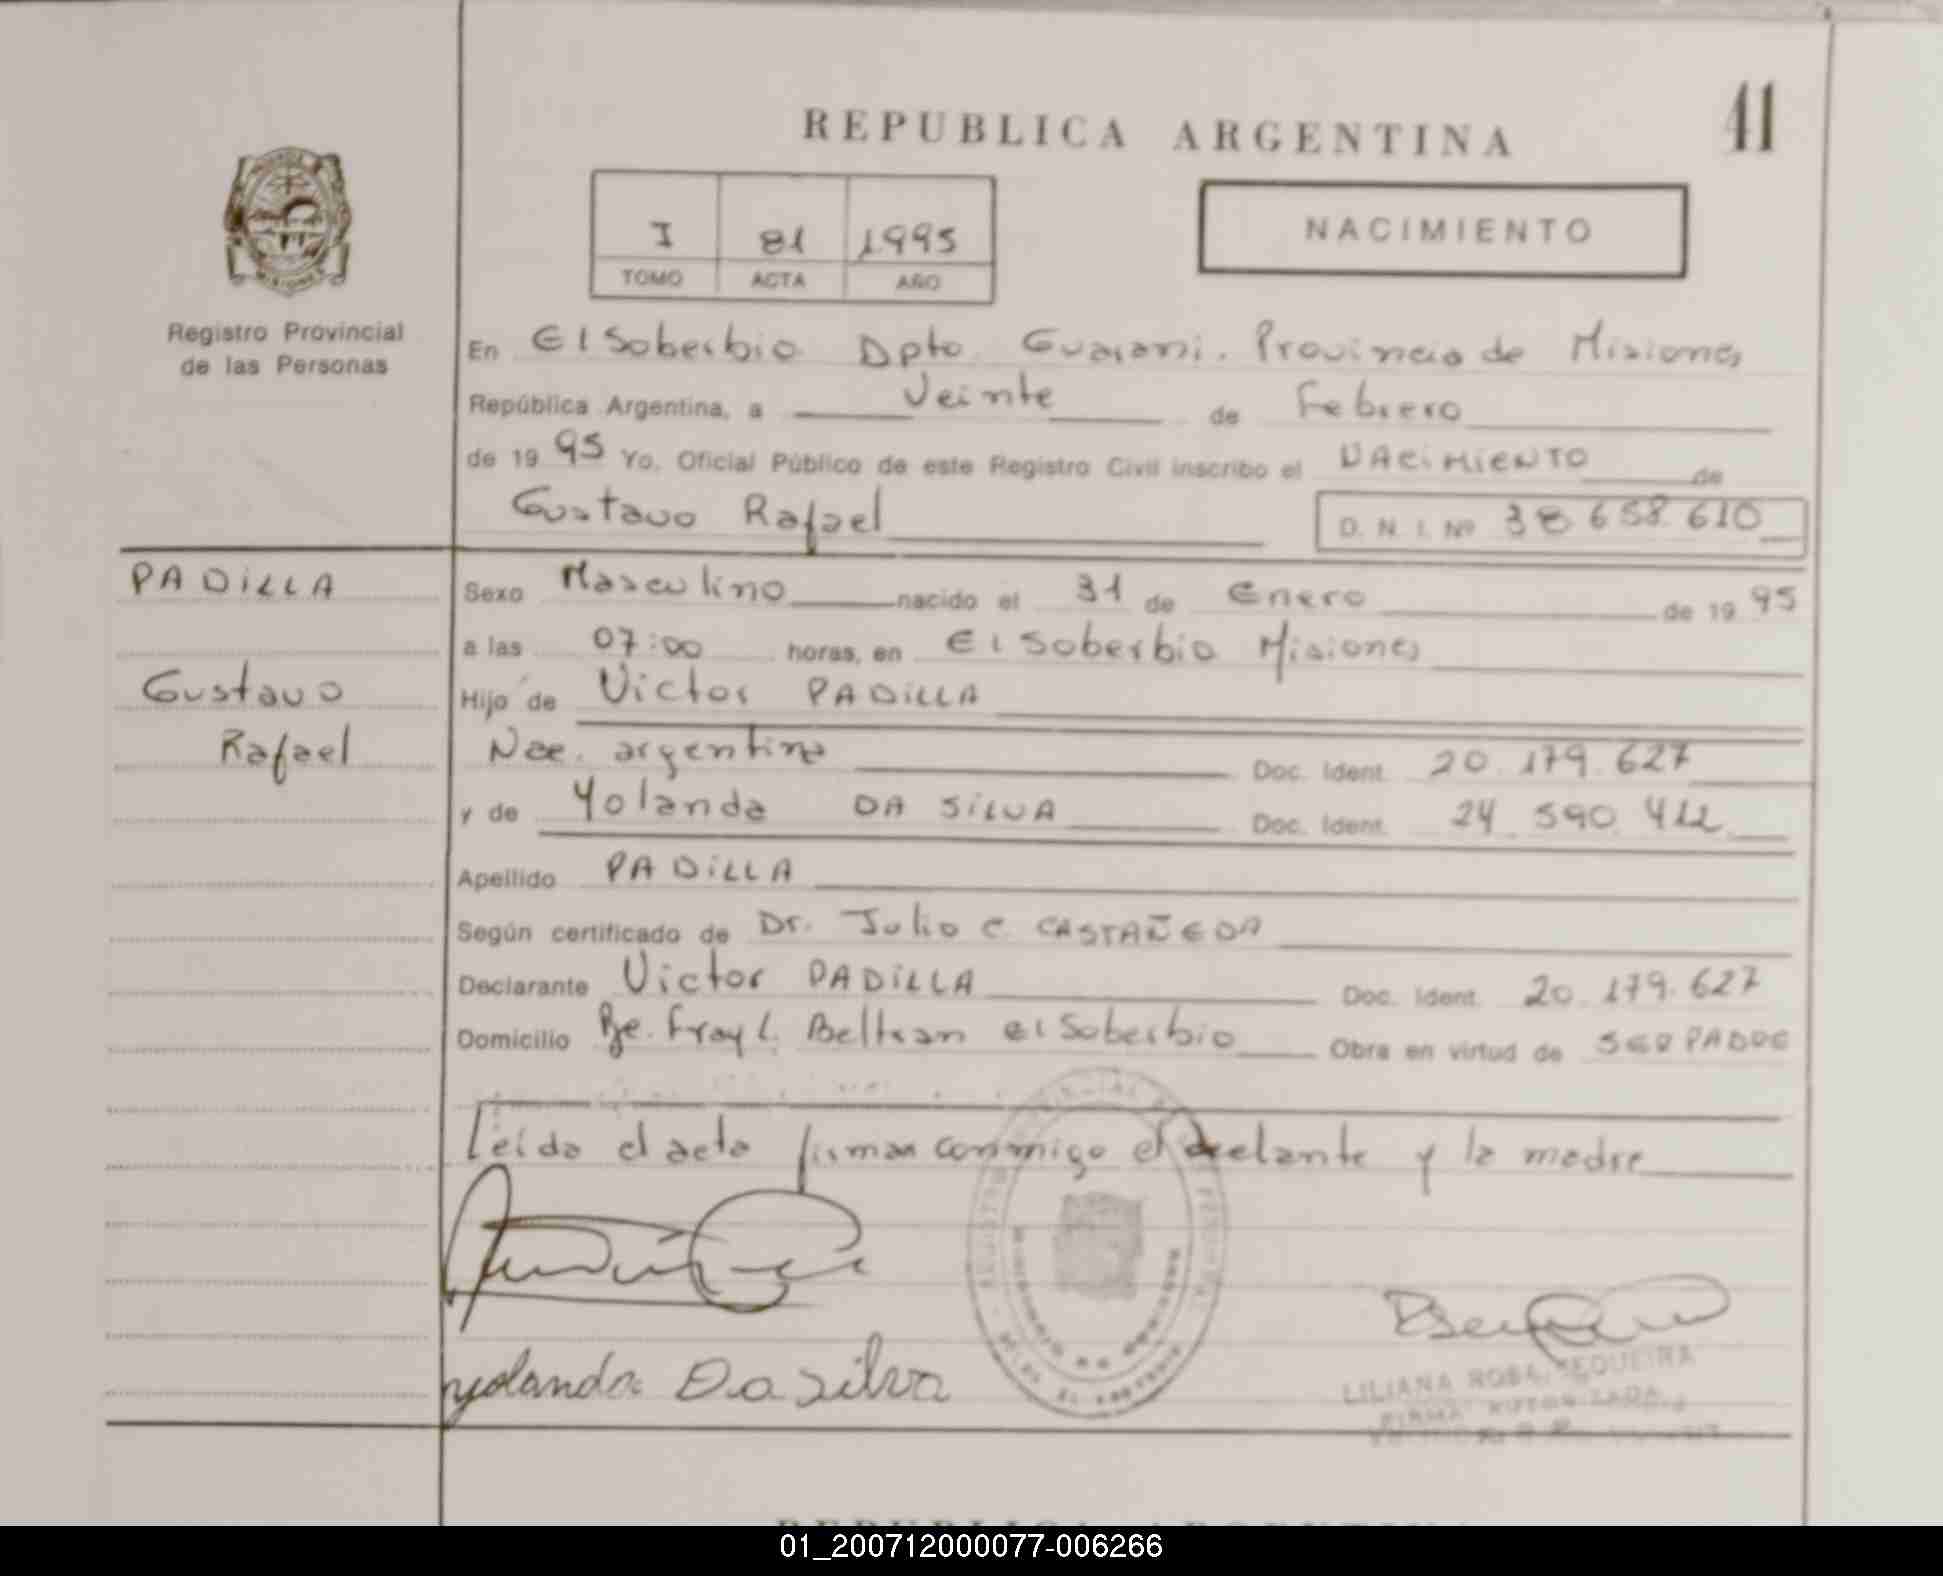 REPUBLICA ARGENTINA
41
I 81 1995
TOMO ACTA AÑO
NACIMIENTO
MISIONES
Registro Provincial
de las Personas
En El Soberbio Dpto. Guarani. Provincia de Misiones
República Argentina, a Veinte de Febrero
de 19 95 Yo, Oficial Público de este Registro Civil inscribo el NACIMIENTO de
Gustavo Rafael D. N. I. Nº 38 658 610
PADILLA
Gustavo
Rafael
Sexo Masculino nacido el 31 de Enero de 19 95
a las 07:00 horas, en El Soberbio Misiones
Hijo de Victor PADILLA
Nac. argentina Doc. Ident. 20.179.627
y de Yolanda DA SILVA Doc. Ident. 24 590 422
Apellido PADILLA
Según certificado de Dr. Julio C. CASTAÑEDA
Declarante Victor PADILLA Doc. Ident. 20.179.627
Domicilio Pje. Fray L. Beltran El Soberbio Obra en virtud de SER PADRE
Leída el acta firman conmigo el y la madre
yolanda Da silva
LILIANA ROSA SEQUEIRA
FIRMA AUTORIZADA
REPUBLICA ARGENTINA
01_200712000077-006266